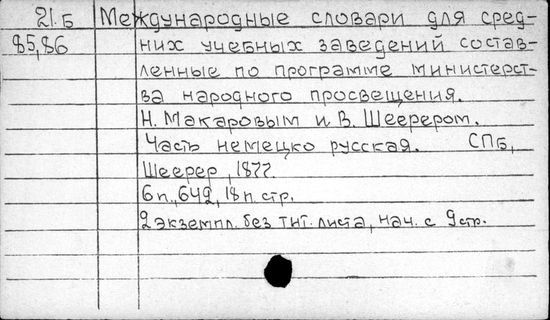 21.Б Международные словари для сред-
85,86 них учебных заведений состав-
ленные по программе министерст-
ва народного просвещения.
Н. Макаровым и В. Шеерером.
Часть немецко русская. СПб,
Шеерер, 1877.
6 п., 642, 18 п. стр.
2 экземпл. без тит. листа, нач. с 9 стр.